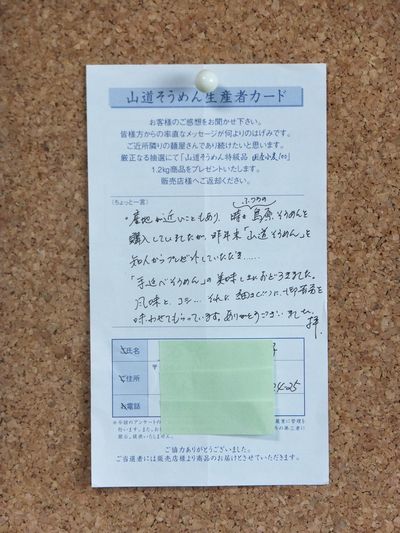 山道そうめん生産者カード
お客様のご感想をお聞かせ下さい。
皆様方からの率直なメッセージが何よりのはげみです。
ご近所隣りの麺屋さんであり続けたいと思います。
厳正なる抽選にて「山道そうめん特級品 国産小麦100
1.2kg商品をプレゼントいたします。
販売店様へご返却ください。
(ちょっと一言)
ふつうの
・産地が近いこともあり、時々島原そうめんを
購入していましたが、昨年末「山道そうめん」を
知人からプレゼントしていただき……
「手延べそうめん」の美味しさにおどろきました。
風味と、コシ… それに細さ
味わせてもらっています。ありがとうございました。
拝.
氏名
〒
住所
24-25
お電話
ご協力ありがとうございました。
ご当選者には販売店様より商品のお届けとさせていただきます。